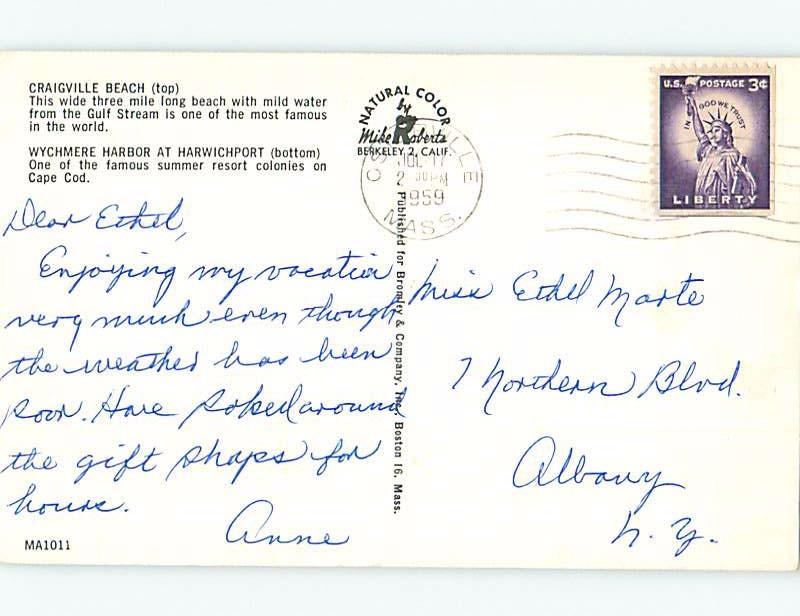 CRAIGVILLE BEACH (top)
This wide three mile long beach with mild water
from the Gulf Stream is one of the most famous
in the world.
WYCHMERE HARBOR AT HARWICHPORT (bottom)
One of the famous summer resort colonies on
Cape Cod.
NATURAL COLOR
by
Mike Roberts
BERKELEY 2, CALIF.
JUL 17
2 30 PM
1959
MASS.
U.S. POSTAGE 3¢
IN GOD WE TRUST
LIBERTY
Dear Ethel,
Enjoying my vacation
very much even though
the weather has been
poor. Have poked around
the gift shops for
hours.
Anne
MA1011
Published for Bromley & Company, Inc. Boston 16, Mass.
Miss Ethel Marte
7 Northern Blvd.
Albany
N.Y.